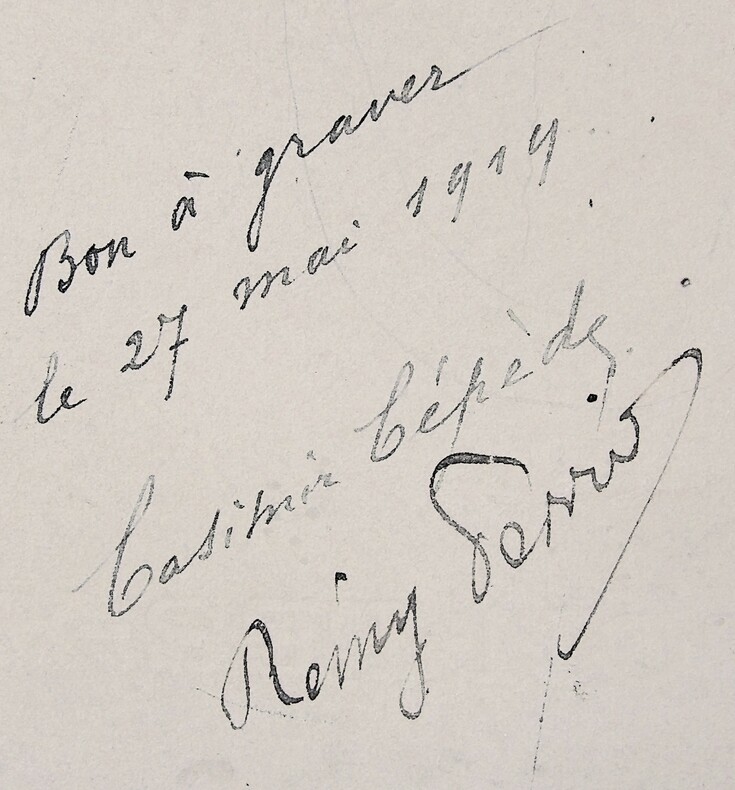 Bon à graver
le 27 mai 1919
Casimir Cépède
Rémy Perrier